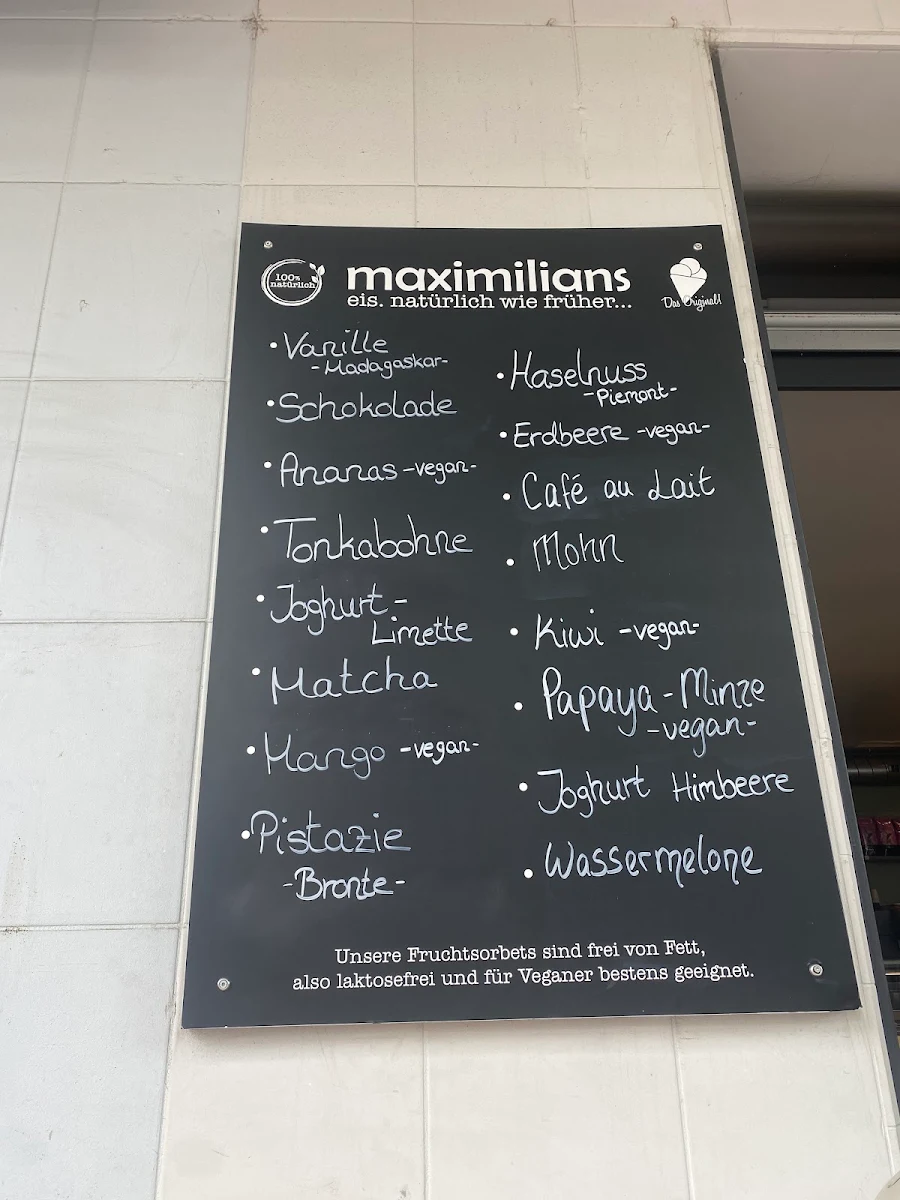 100%
natürlich
maximilians
eis. natürlich wie früher...
Das Original!
• Vanille
-Madagaskar-
• Schokolade
• Ananas -vegan-
• Tonkabohne
• Joghurt-
Limette
• Matcha
• Mango -vegan-
• Pistazie
-Bronte-
• Haselnuss
-Piemont-
• Erdbeere -vegan-
• Café au Lait
• Mohn
• Kiwi -vegan-
• Papaya-Minze
-vegan-
• Joghurt Himbeere
• Wassermelone
Unsere Fruchtsorbets sind frei von Fett,
also laktosefrei und für Veganer bestens geeignet.